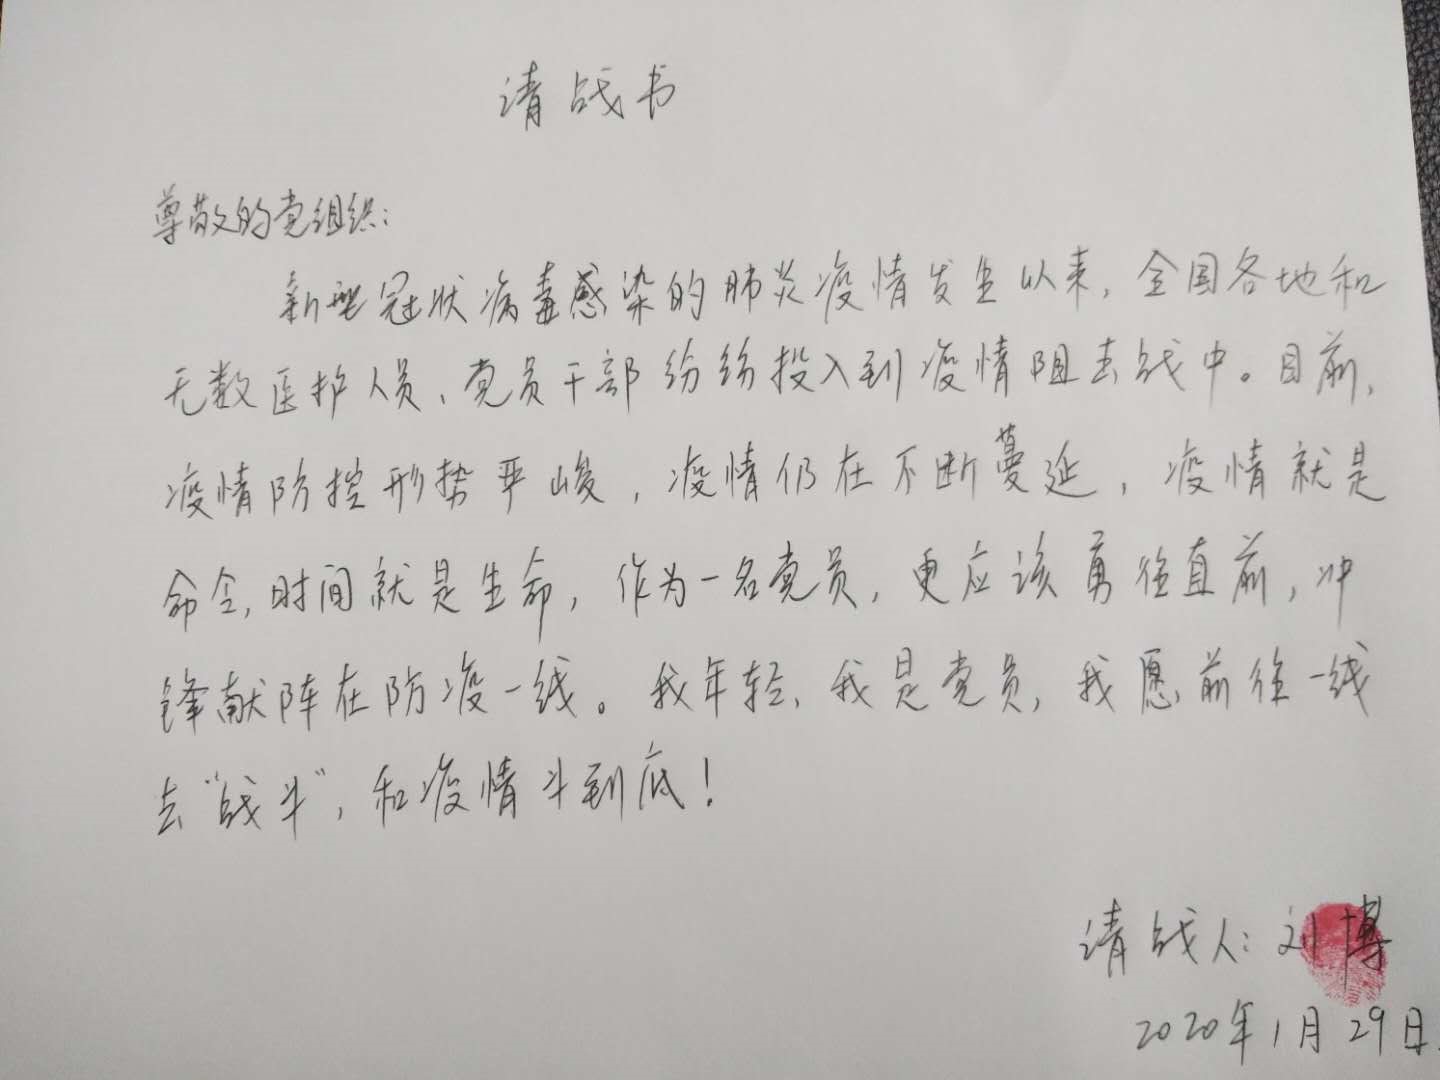 请战书
尊敬的党组织：
新型冠状病毒感染的肺炎疫情发生以来，全国各地和
无数医护人员、党员干部纷纷投入到疫情阻击战中。目前，
疫情防控形势严峻，疫情仍在不断蔓延，疫情就是
命令，时间就是生命，作为一名党员，更应该勇往直前，冲
锋献阵在防疫一线。我年轻，我是党员，我愿前往一线
去“战斗”，和疫情斗到底！
请战人：刘博
2020年1月29日